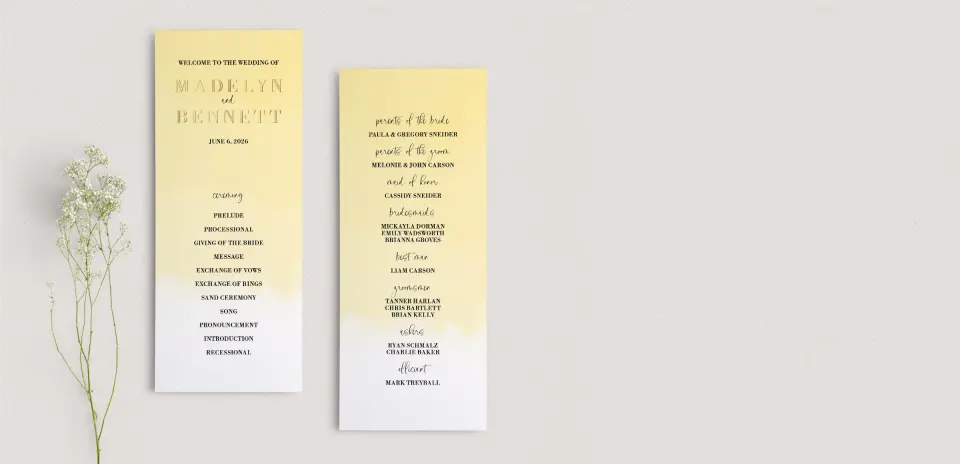 WELCOME TO THE WEDDING OF
MADELYN
and
BENNETT
JUNE 6, 2026
ceremony
PRELUDE
PROCESSIONAL
GIVING OF THE BRIDE
MESSAGE
EXCHANGE OF VOWS
EXCHANGE OF RINGS
SAND CEREMONY
SONG
PRONOUNCEMENT
INTRODUCTION
RECESSIONAL
parents of the bride
PAULA & GREGORY SNEIDER
parents of the groom
MELONIE & JOHN CARSON
maid of honor
CASSIDY SNEIDER
bridesmaids
MICKAYLA DORMAN
EMILY WADSWORTH
BRIANNA GROVES
best man
LIAM CARSON
groomsmen
TANNER HARLAN
CHRIS BARTLETT
BRIAN KELLY
ushers
RYAN SCHMALZ
CHARLIE BAKER
officiant
MARK TREYBALL